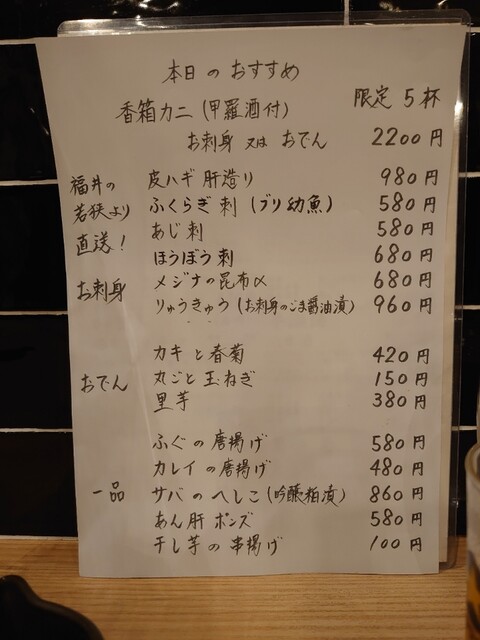 本日のおすすめ
香箱カニ（甲羅酒付） 限定5杯
お刺身又はおでん 2200円
福井の若狭より直送！お刺身
皮ハギ肝造り 980円
ふくらぎ刺（ブリ幼魚） 580円
あじ刺 580円
ほうぼう刺 680円
メジナの昆布〆 680円
りゅうきゅう（お刺身のごま醤油漬） 960円
おでん
カキと春菊 420円
丸ごと玉ねぎ 150円
里芋 380円
一品
ふぐの唐揚げ 580円
カレイの唐揚げ 480円
サバのへしこ（吟醸粕漬） 860円
あん肝ポンズ 580円
干し芋の串揚げ 100円